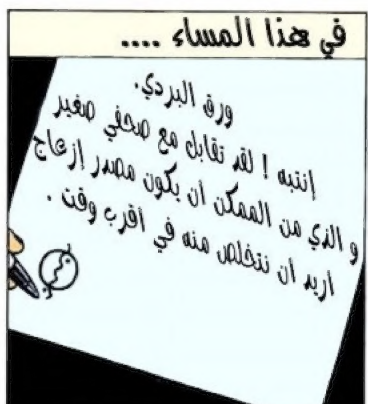 في هذا المساء ....
ورق البردي.
إنتبه ! لقد تقابل مع صحفي صغير
و الذي من الممكن ان يكون مصدر إزعاج
اريد ان نتخلص منه في اقرب وقت .